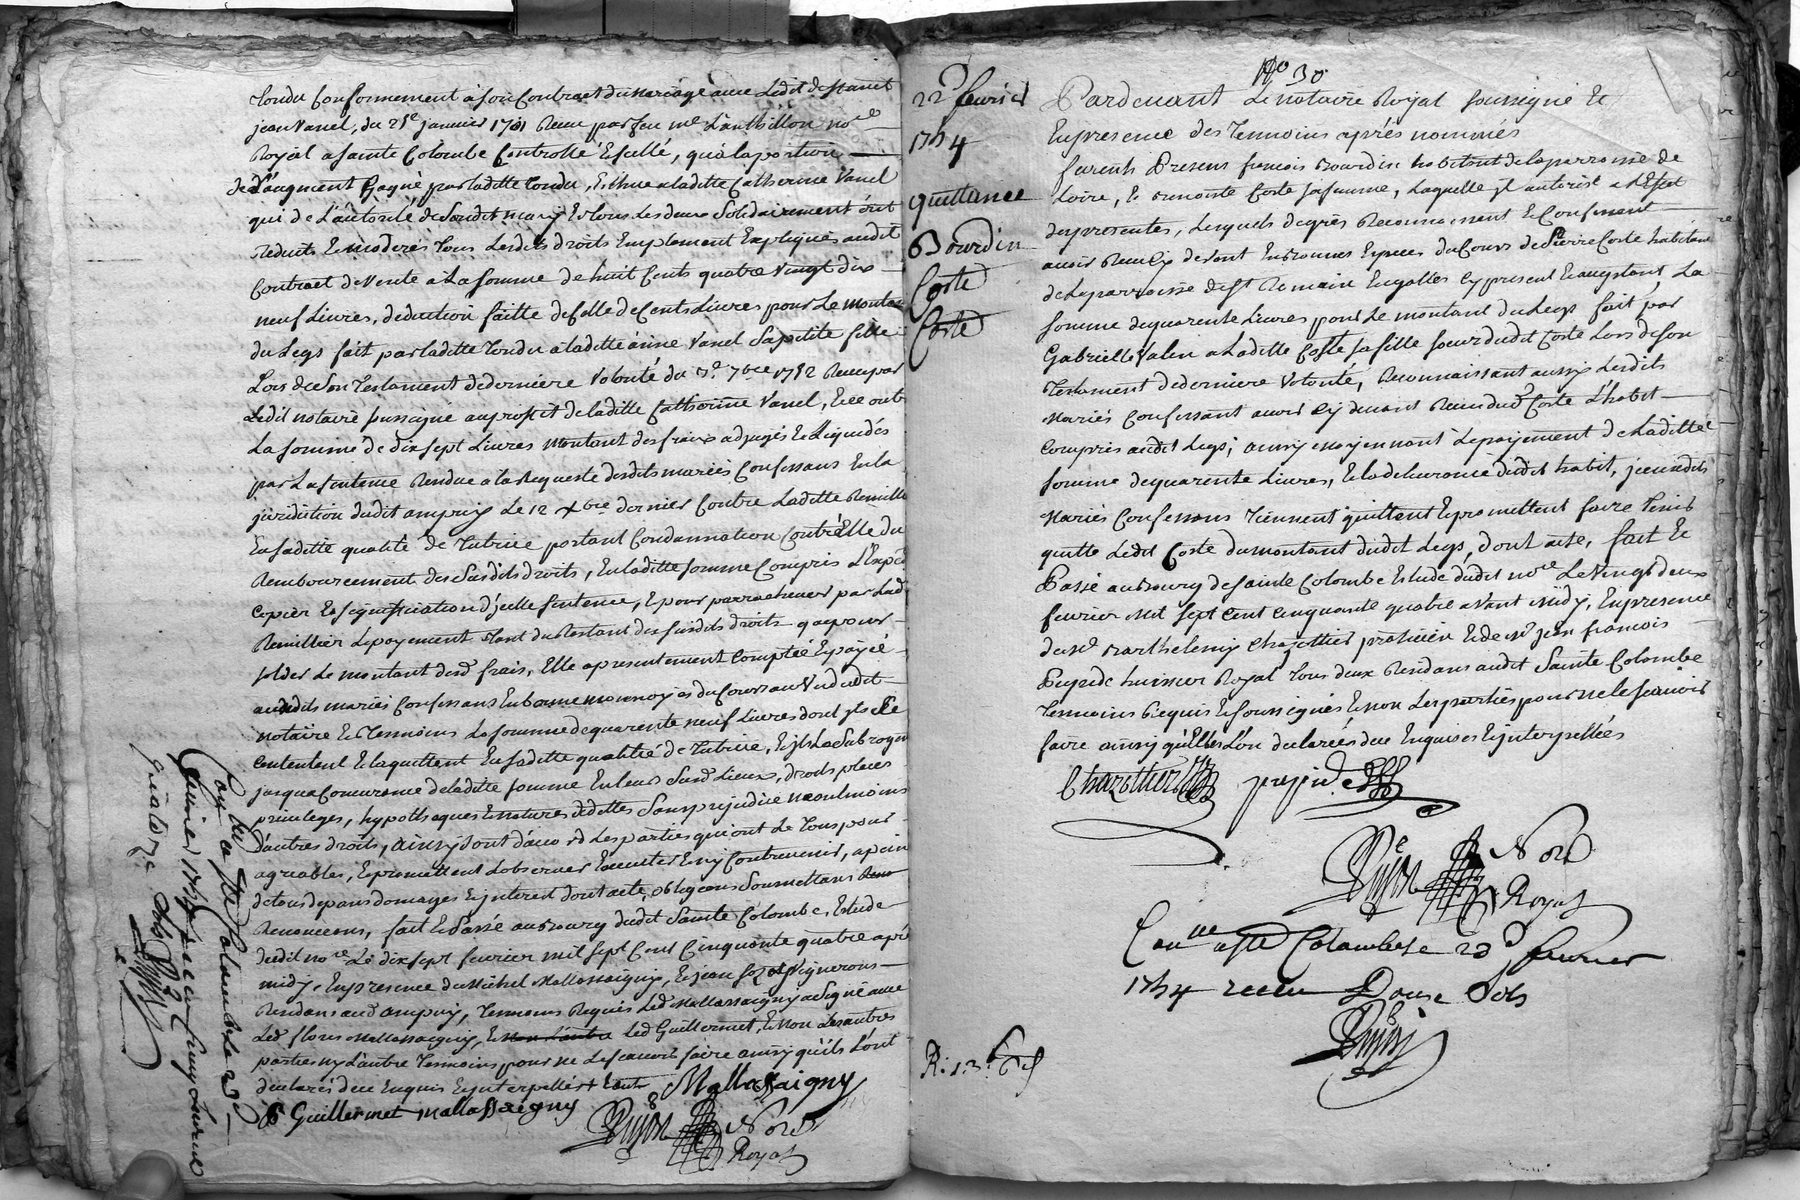 Tondu Conformement à son Contract de Mariage avec Ledit deffunct
jean Vanel, du 21e janvier 1701 Receu par feu me Lanthillon nore
Royal a sainte Colombe Controllé & scellé, qu'à la portion
de L'augment Gagné par laditte Tondu, & Eschue a laditte Catherine Vanel
qui de L'autorité de Soudit mary & tous Les deux Solidairement ont
reduits & moderés tous Lesdits droits Emplement Expliqués audit
Contract de Vente a La somme de huit Cents quatre Vingt dix
neuf Livres, deduction faitte de Celle de Cents Livres pour Le montan
du Legs fait par laditte Tondu a laditte anne Vanel Sa petite fille
Lors de Son Testament de derniere Volonté du 7bre 1752 Receu par
Ledit notaire soussigné au proffit de laditte Catherine Vanel, & en outre
La somme de dix sept Livres montant des frais adjugés & Liquidés
par La sentence Rendue a la Requeste desdits mariés Confessans En la
juridiction dudit ampuy Le 12 xbre dernier Contre Laditte Remillie
En saditte qualité de Tutrice portant Condamnation Contre Elle du
Remboursement des Susdits droits, En laditte somme Compris L'Expé
& signiffication d'jcelle sentence, & pour parrachever par Lad
Remillier Le payement du Restant des susdits droits que pour
solder Le montant desd frais, Elle a presentement Compté & payé
ausdits mariés Confessans En bonne monnoye du Cours au Vu dudit
notaire & Temoins La somme de quarente neuf Livres dont jls se
Contentent & la quittent En saditte qualité de Tutrice, & jls La Subrogent
jusqua Concurance de laditte somme En leurs Susd Lieux, droits places
privileges, hypotheques & natures de dettes Sans prejudice neanlmoins
D'autres droits, Ainsy Sont d'accord Les parties qui ont Le tout pour
agreables, & promettent L'observer Executer & n'y Contrevenir, a peine
de tous depans domages & jnterest dont acte, obligeans Soumettans
Renonceons, fait & Passé au Bourg dudit Sainte Colombe, Etude
dudit nore Le dix sept fevrier mil sept Cent Cinquante quatre aprè
midy, En presence de Michel Mallassaigny, & jean Vignerons
Rendans aud ampuy, Temoins Requis Led Mallassaigny a Signé avec
Led flores Mallassaigny, Led Guillermet, & Non Les autres
parties ny L'autre Temoins pour ne Le scavoir faire ainsy qu'ils L'ont
declaré de ce Enquis & jnterpellés
Mallassaigny
Guillermet mallassaigny
Dujon Nore
Royal
Connue a Ste Colombe Le 23e
fevrier 1754
quatorze Sols
Dujon
22e fevrier
1754
quittance
Bourdin
Coste
Coste
No 30
Pardevant Le notaire Royal soussigné &
En presence des Temoins aprés nommés
furent Presens françois Bourdin habitant de la parroisse de
Loire, & Coste sa femme, Laquelle jl autorise a L'Effet
des presentes, Lesquels de grés Reconnoissent & Confessent
avoir Receu cy devant En bonnes Especes du Cours de Pierre Coste habitant
de La parroisse de St Romain En galles cy present & acceptant La
somme de quarente Livres pour Le montant du Legs fait par
Gabrielle Valin a Laditte Coste sa fille soeur dudit Coste Lors de son
Testament de derniere Volonté, Reconnaissant aussy Lesdits
Mariés Confessant avoir Cy devant Receu dud Coste L'habit
Compris audit Legs; au moyennant Le payement de Laditte
somme de quarente Livres, & la delivrance dudit habit, jceux dits
Mariés Confessans Tiennent quittent & promettent faire Tenir
quitte Ledit Coste du montant dudit Legs, dont acte, fait &
Passé au Bourg de sainte Colombe Etude dudit nore Le Vingt deux
fevrier mil sept Cent Cinquante quatre avant midy, En presence
de me Barthelemy Chazottier praticien & de me jean françois
huissier Royal Tous deux Rendans audit Sainte Colombe
Temoins Requis & soussignés & non Les parties pour ne le scavoir
faire ainsy qu'Elles L'on declarées de ce Enquises & jnterpellées
Chazottier
Dujon Nore
Royal
Connue a Ste Colombe Le 23e fevrier
1754 receu Douse Sols
Dujon